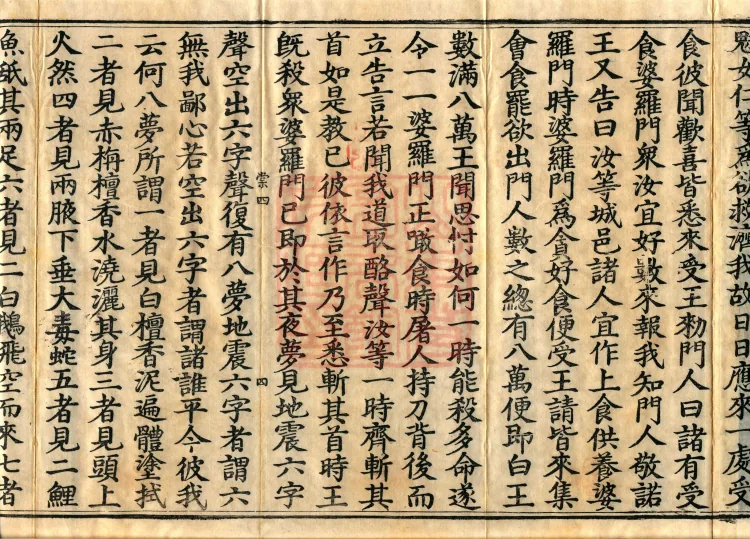 如仁等爲欲救濟我故日日應來一處受
食彼聞歡喜皆悉來受王勑門人曰諸有受
食婆羅門衆汝宜好數來報我知門人敬諾
王又告曰汝等城邑諸人宜作上食供養婆
羅門時婆羅門爲貪好食便受王請皆來集
會食罷欲出門人數之緫有八萬便即白王
數滿八萬王聞思忖如何一時能殺多命遂
令一一婆羅門正噉食時屠人持刀背後而
立告言若聞我道取酪聲汝等一時齊斬其
首如是教已彼依言作乃至悉斬其首時王
既殺衆婆羅門已即於其夜夢見地震六字
棠四 四
聲空出六字聲復有八夢地震六字者謂六
無我鄙心若空出六字者謂諸誰平今彼我
云何八夢所謂一者見白檀香泥遍體塗拭
二者見赤栴檀香水澆灑其身三者見頭上
火然四者見兩腋下垂大毒蛇五者見二鯉
魚舐其兩足六者見二白鵝飛空而來七者